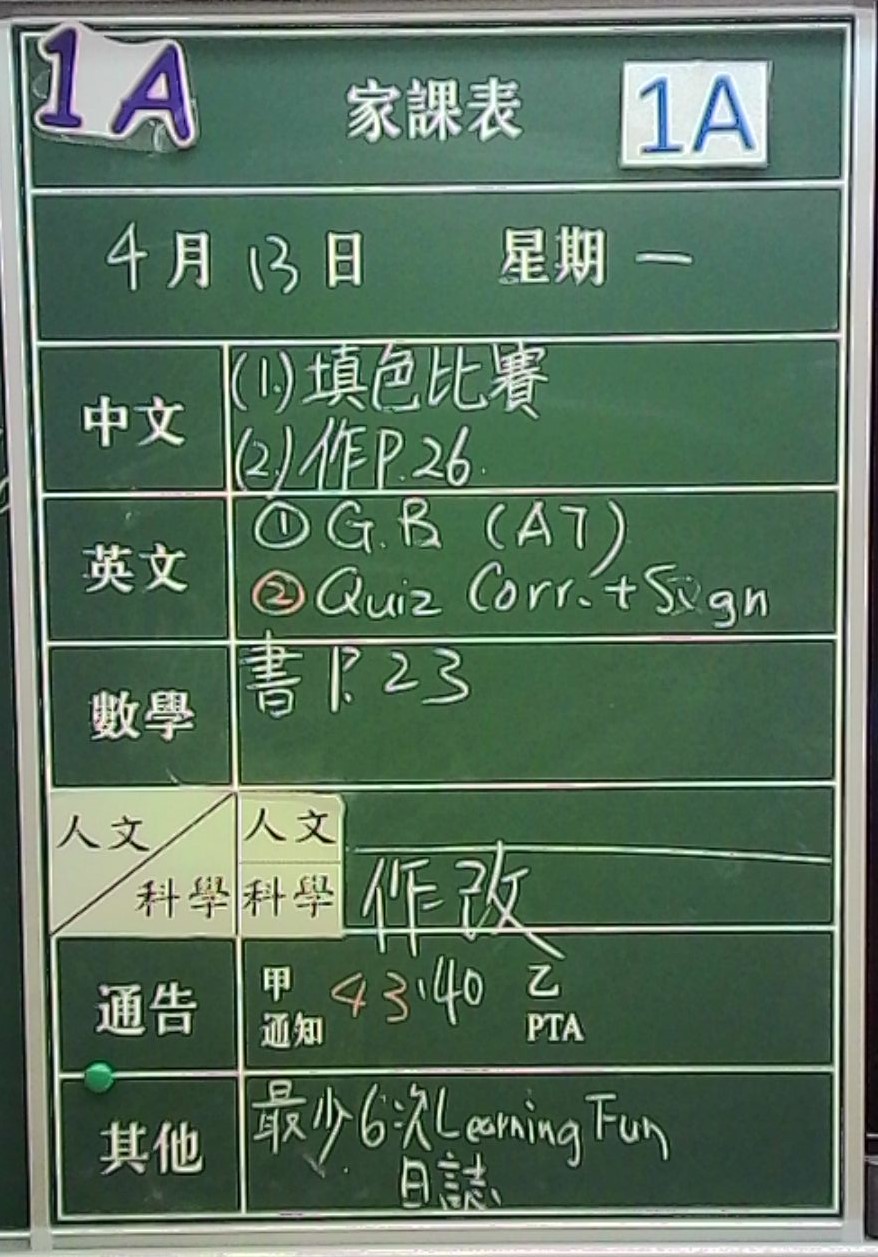 1A 家課表 1A
4月13日 星期一
中文 (1.)填色比賽
(2.)作P.26.
英文 ① G.B (A7)
② Quiz Corr. + Sign
數學 書 P.23
人文 人文
科學 科學 作改
通告 甲 通知 43、40 乙 PTA
其他 最少6次Learning Fun
日誌